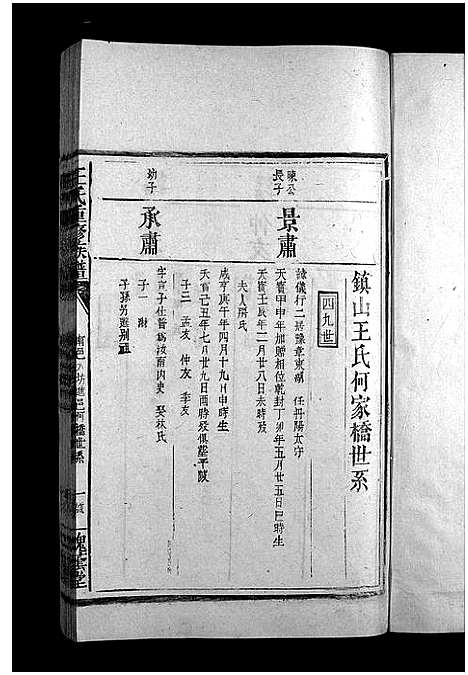 鎮山王氏何家橋世系
四九世
陳公
長子
景肅
諱儀行二居豫章東湖 任丹陽太守
天寶甲申年加贈相位乾封丁卯年五月廿五日巳時生
天寶壬辰年二月廿八日未時歿
夫人房氏
咸亨庚午年四月十九日申時生
天寶己丑年七月廿九日酉時歿俱塟平陂
子三 孟友 仲友 季友
幼子
承肅
字宣子仕晉爲南內史 娶林氏
子一 耐
子孫另遷別
王氏重修族譜